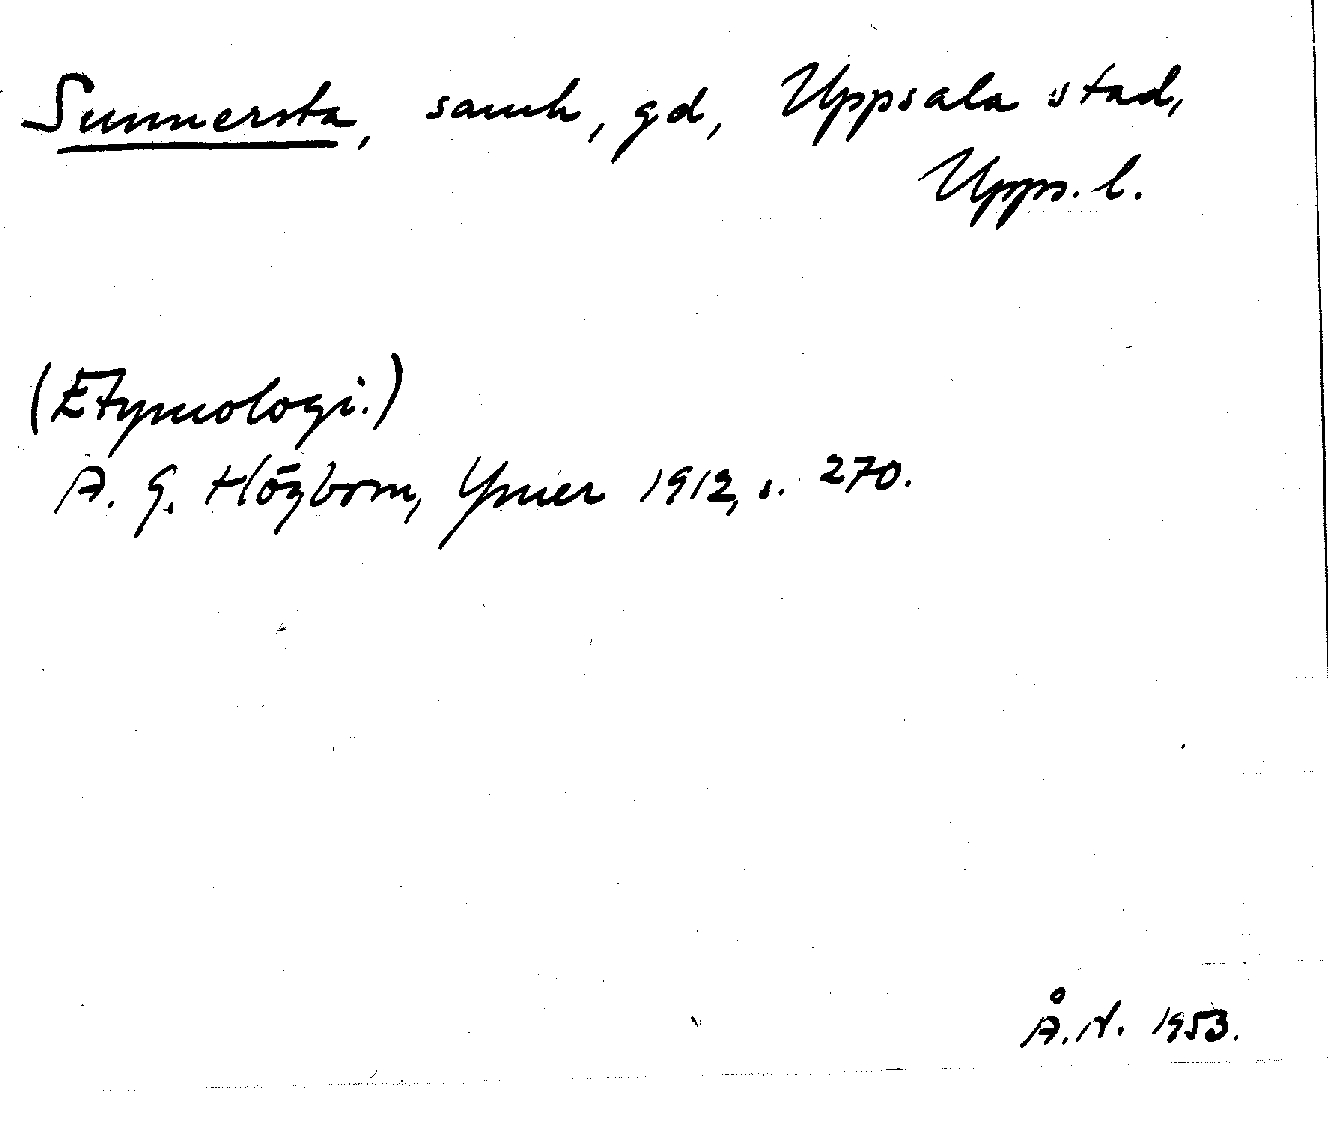 Sunnersta, samh, gd, Uppsala stad,
Upps. l.
(Etymologi.)
A. G. Högbom, Ymer 1912, s. 270.
Å. N. 1953.